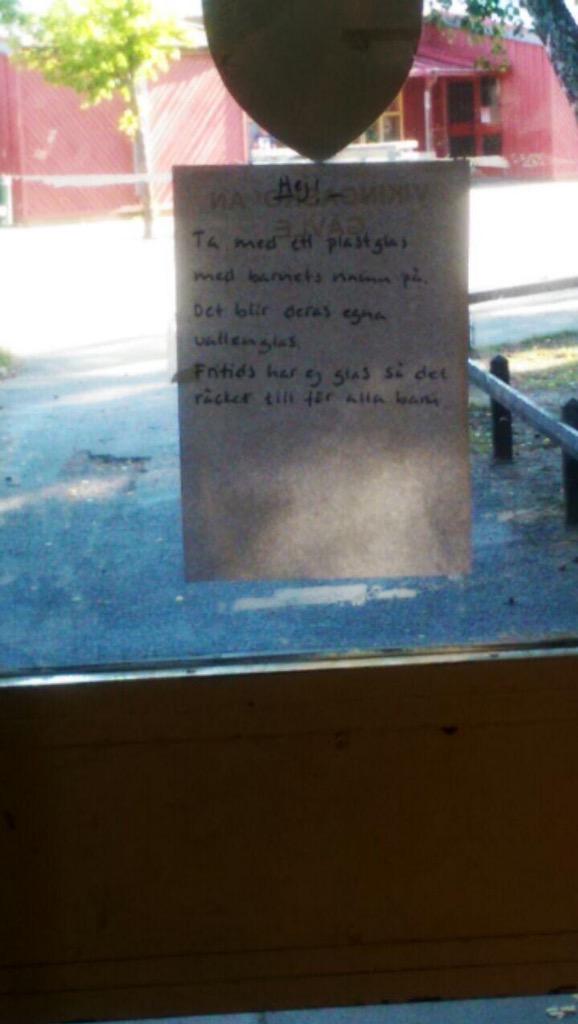 Hej!
VIKINGASKOLAN
GÄVLE
Ta med ett plastglas
med barnets namn på.
Det blir deras egna
vattenglas.
Fritids har ej glas så det
räcker till för alla barn